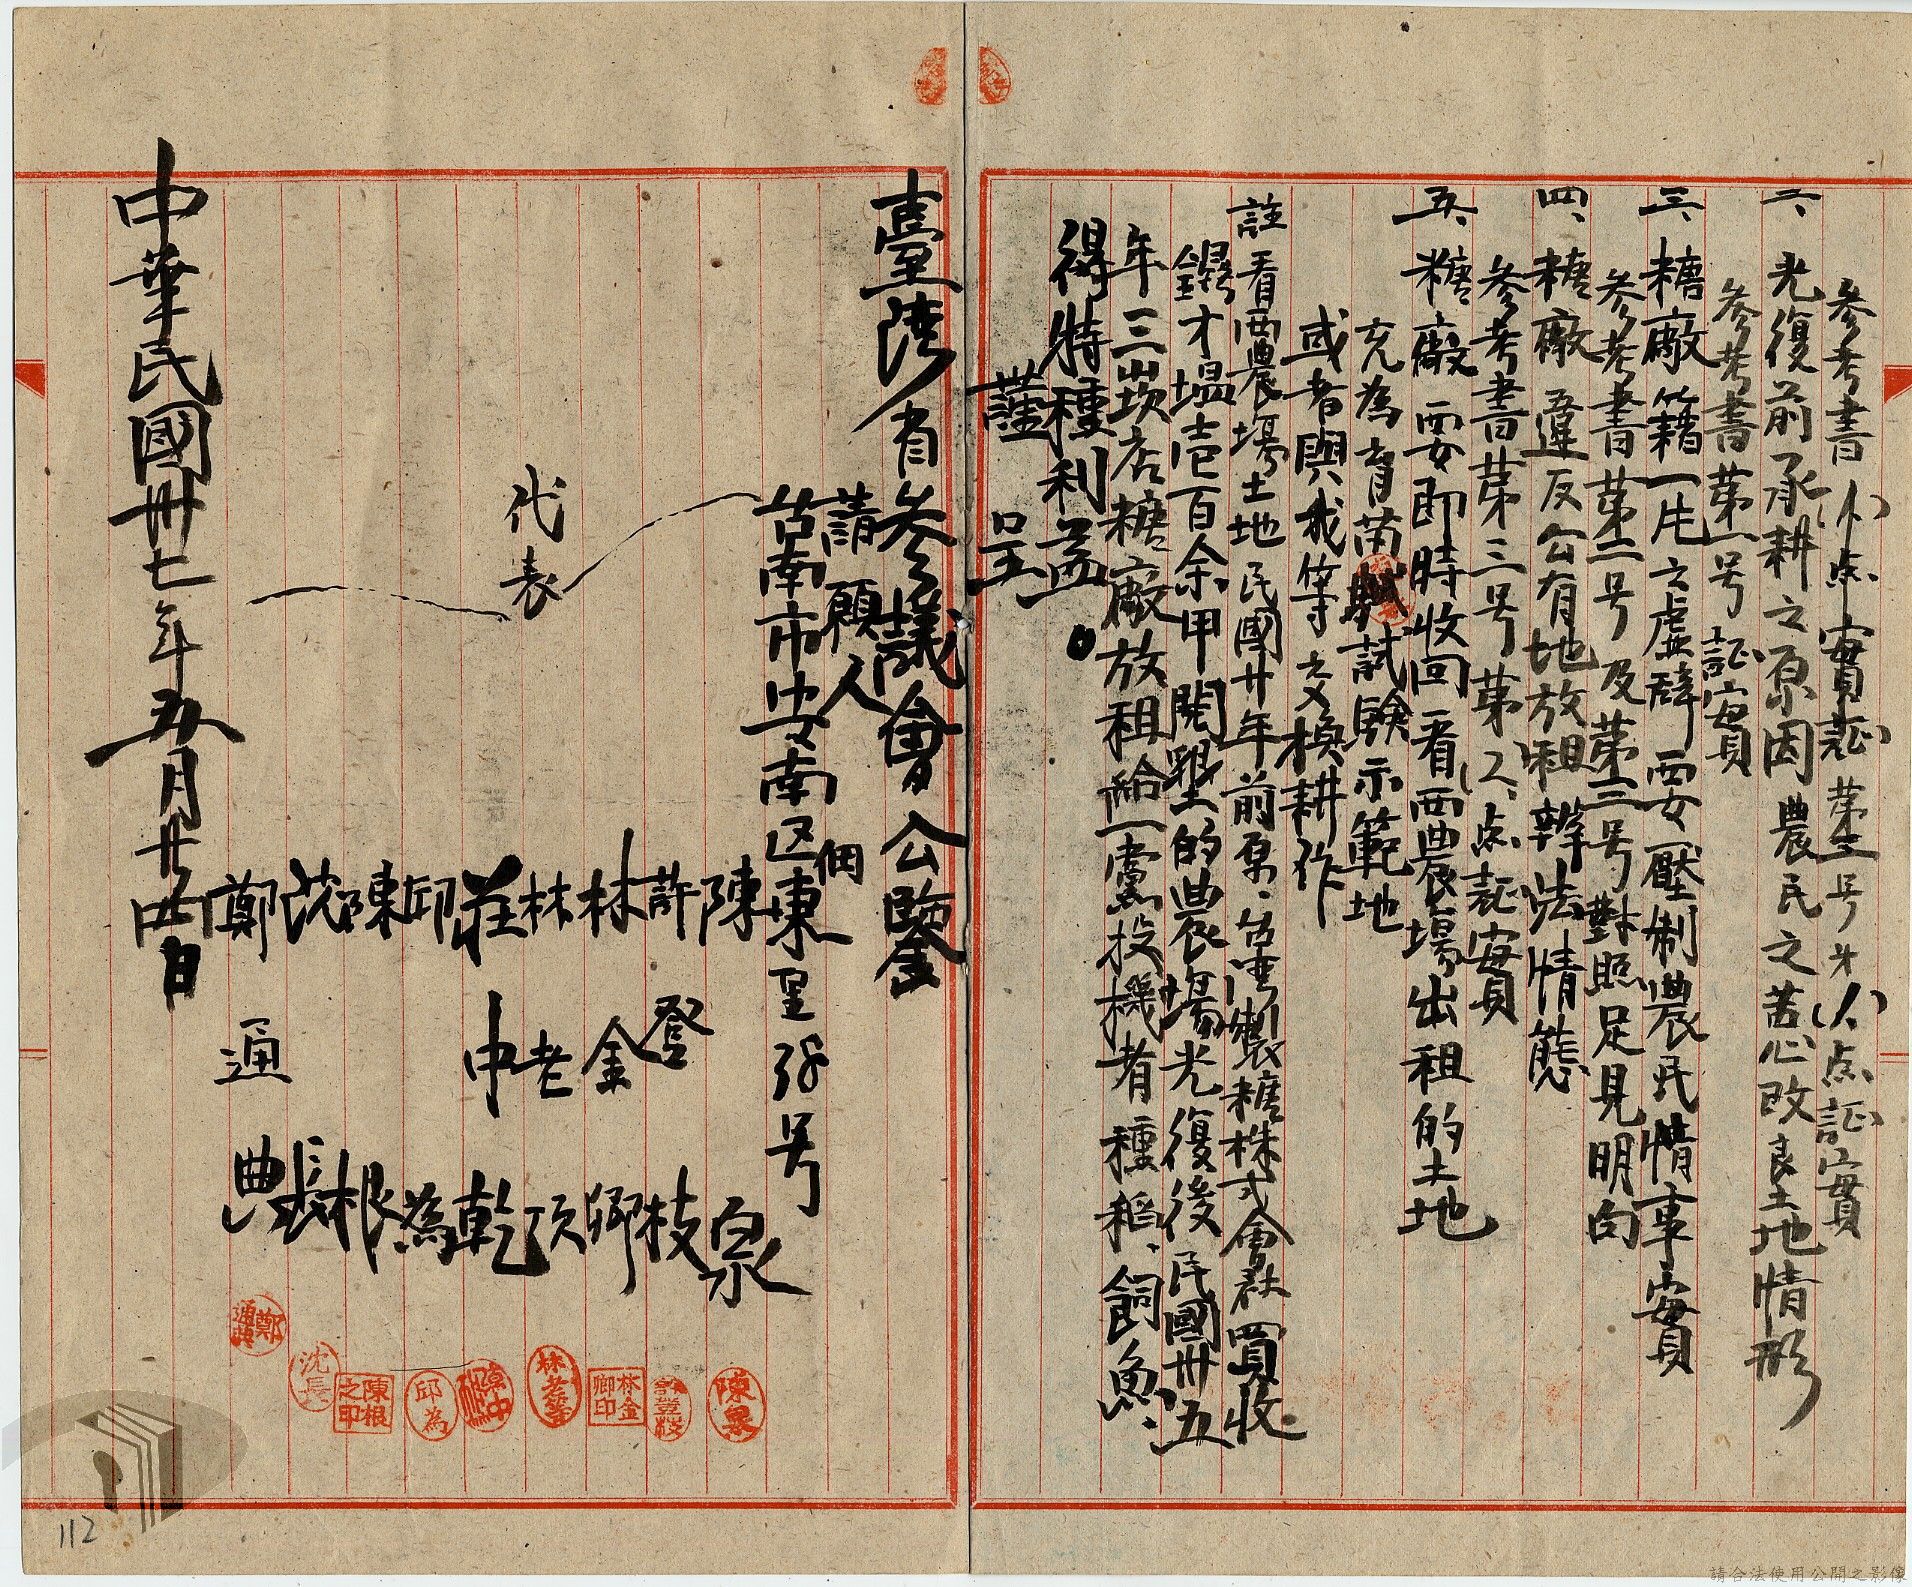 參考書 第一号 第 点証實
二、光復前承耕之原因農民之苦心改良土地情形
參考書第一号証實
三、糖廠籍一片之虛辭要壓制農民情事實
參考書第二号及第三号對照足見明白
四、糖廠違反公有地放租辦法情態
參考書第三号第 点証實
五、糖廠要即時收回看西農場出租的土地
充為育苗試驗示範地
或者與我等交換耕作
註 看西農場土地民國廿年前原、台灣製糖株式會社買收
鹽 才塭壱百余甲開墾的農場光復後民國卅五
年三崁店糖廠放租給一黨投機者種稻、飼魚、
得特種利益。
謹呈
臺湾省參議會公鑒
請願人 佃
台南市安南区東 里 号
陳泉
許登枝
林金卿
林老頂
代表
莊申乾
邱為
陳根
沈長
鄭通農
中華民國卅七年五月廿四日
陳泉
許登枝
林金卿印
邱為
陳根之印
沈長
112
請合法使用公開之影像